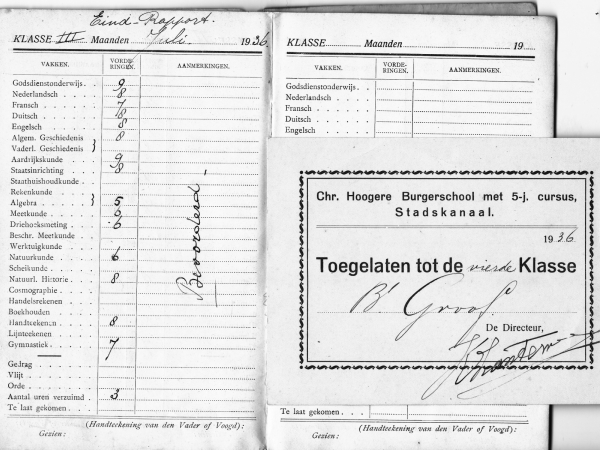 Eind-Rapport.
KLASSE III Maanden Juli 1936
VAKKEN. VORDE-RINGEN. AANMERKINGEN.
Godsdienstonderwijs . . 9
Nederlandsch . . . . 8
Fransch . . . . . 7
Duitsch . . . . . 8
Engelsch . . . . . 8
Algem. Geschiedenis } 8
Vaderl. Geschiedenis
Aardrijkskunde . . . 9
Staatsinrichting . . . 8
Staathuishoudkunde . .
Rekenkunde . . . .
Algebra . . . . . } 5
Meetkunde . . . . 6
Driehoeksmeting . . . 6
Beschr. Meetkunde . .
Werktuigkunde . . .
Natuurkunde . . . . 6
Scheikunde . . . .
Natuurl. Historie . . . 8
Cosmographie . . . .
Handelsrekenen . . .
Boekhouden . . . .
Handteekenen . . . 8
Lijnteekenen . . . .
Gymnastiek . . . . 7
Gedrag . . . . .
Vlijt . . . . . .
Orde . . . . . .
Aantal uren verzuimd . 3
Te laat gekomen . . .
Bevorderd.
(Handteekening van den Vader of Voogd):
Gezien:
KLASSE Maanden 19
VAKKEN. VORDE-RINGEN. AANMERKINGEN.
Godsdienstonderwijs . .
Nederlandsch . . . .
Fransch . . . . .
Duitsch . . . . .
Engelsch . . . . .
Chr. Hoogere Burgerschool met 5-j. cursus,
Stadskanaal.
1936
Toegelaten tot de vierde Klasse
B. Groof.
De Directeur,
Te laat gekomen . . .
(Handteekening van den Vader of Voogd):
Gezien: